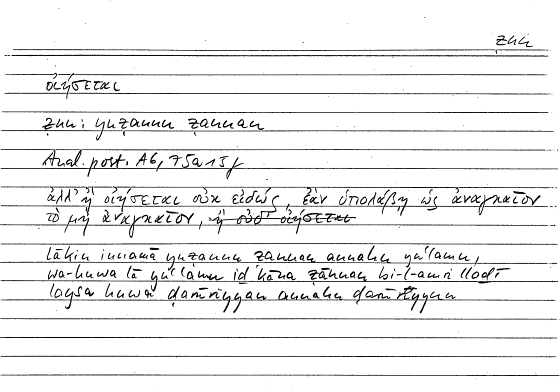 ẓnn
οἰήσεται
ẓnn: yuẓannu ẓannan
Anal. post. A6, 75a15f
ἀλλ' ἢ οἰήσεται οὐκ εἰδώς, ἐὰν ὑπολάβῃ ὡς ἀναγκαῖον
τὸ μὴ ἀναγκαῖον, ἢ οὐδ' οἰήσεται
lākin innamā yuẓannu ẓannan annahu yaʿlamu,
wa-huwa lā yaʿlamu iḏ kāna ẓānnan bi-l-amri llaḏī
laysa huwa ḍarūriyyan annahu ḍarūriyyun